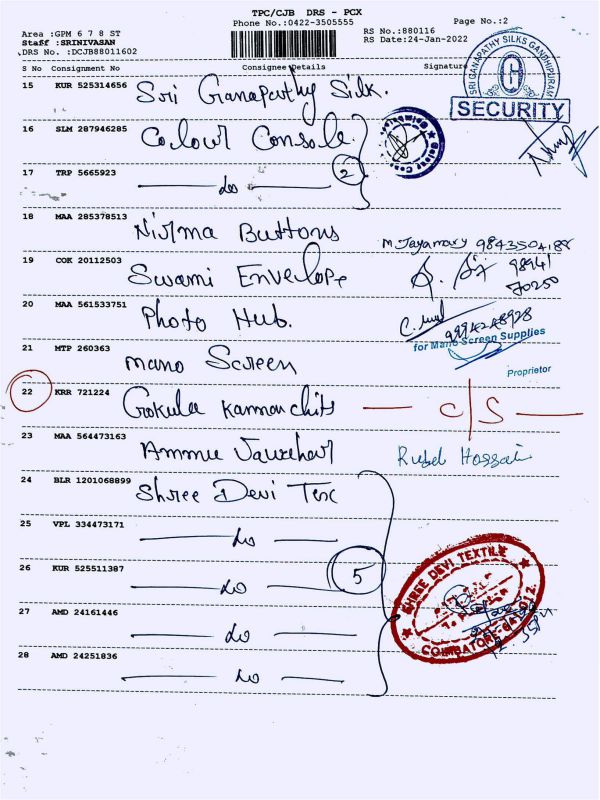 TPC/CJB DRS - PCX
Phone No.:0422-3505555
Page No.:2
Area :GPM 6 7 8 ST
Staff :SRINIVASAN
DRS No. :DCJB88011602
RS No.:880116
RS Date:24-Jan-2022
S No Consignment No Consignee Details Signature
SRI GANAPATHY SILKS GANDHIPURAM
G
SECURITY
15 KUR 525314656 Sri Ganapathy Silk.
16 SLM 287946285 Colour Console.
17 TRP 5665923 — do —
2
18 MAA 285378513 Nirma Buttons M. Jayamary 9843504188
19 COK 20112503 Swami Envelope 98941
70250
20 MAA 561533751 Photo Hub. 9994248928
for Mano Screen Supplies
21 MTP 260363 Mano Screen
Proprietor
22 KRR 721224 Gokula Kannan chits — C/S —
23 MAA 564473163 Ammu
24 BLR 1201068899 Shree Devi Tex
25 VPL 334473171 — do —
26 KUR 525511387 — do —
5
27 AMD 24161446 — do —
28 AMD 24251836 — do —
SHREE DEVI TEXTILE
COIMBATORE-641 012.